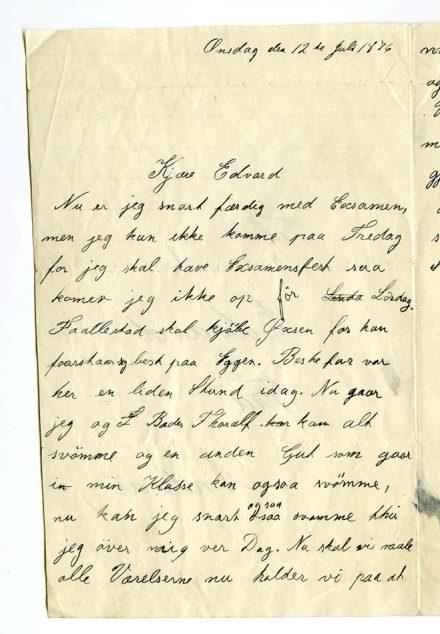 Onsdag den 12te Juli 1876
Kjære Edvard
Nu er jeg snart færdig med Exsamen,
men jeg kan ikke komme paa Fredag
for jeg skal have Exsamensfest saa
komer jeg ikke op før Lørdag.
skal kjøbe Oxsen for han
best paa Eggen. Bestefar var
her en liden Stund idag. Nu gaar
jeg og Bader. Thoralf kan alt
svømme og en anden Gut som gaar
in min Klasse kan ogsaa svømme,
nu kan jeg snart ogsaa svømme thi
jeg över mig ver Dag. Nu skal vi maale
alle Værelserne nu holder vi paa at